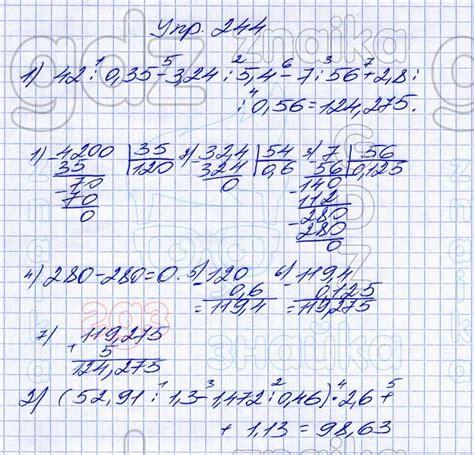 Упр. 244
1) 42 : 0,35 - 3,24 : 5,4 - 7 : 56 + 2,8 :
1 5 2 6 3 7
: 0,56 = 124,275.
4
1) 4,200 | 35 2) 32,4 | 54 3) 7 | 56
- 35 | 120 - 32 4 | 0,6 - 56 | 0,125
- 70 0 - 140
70 112
0 - 280
280
0
4) 280 - 280 = 0. 5) - 120 6) - 119,4
0,6 0,125
= 119,4 = 119,275
7) + 119,275
5
124,275
2) (52,91 : 1,3 - 1,472 : 0,46) · 2,6 +
1 3 2 4 5
+ 1,13 = 98,63
gdz
znaika
знайка